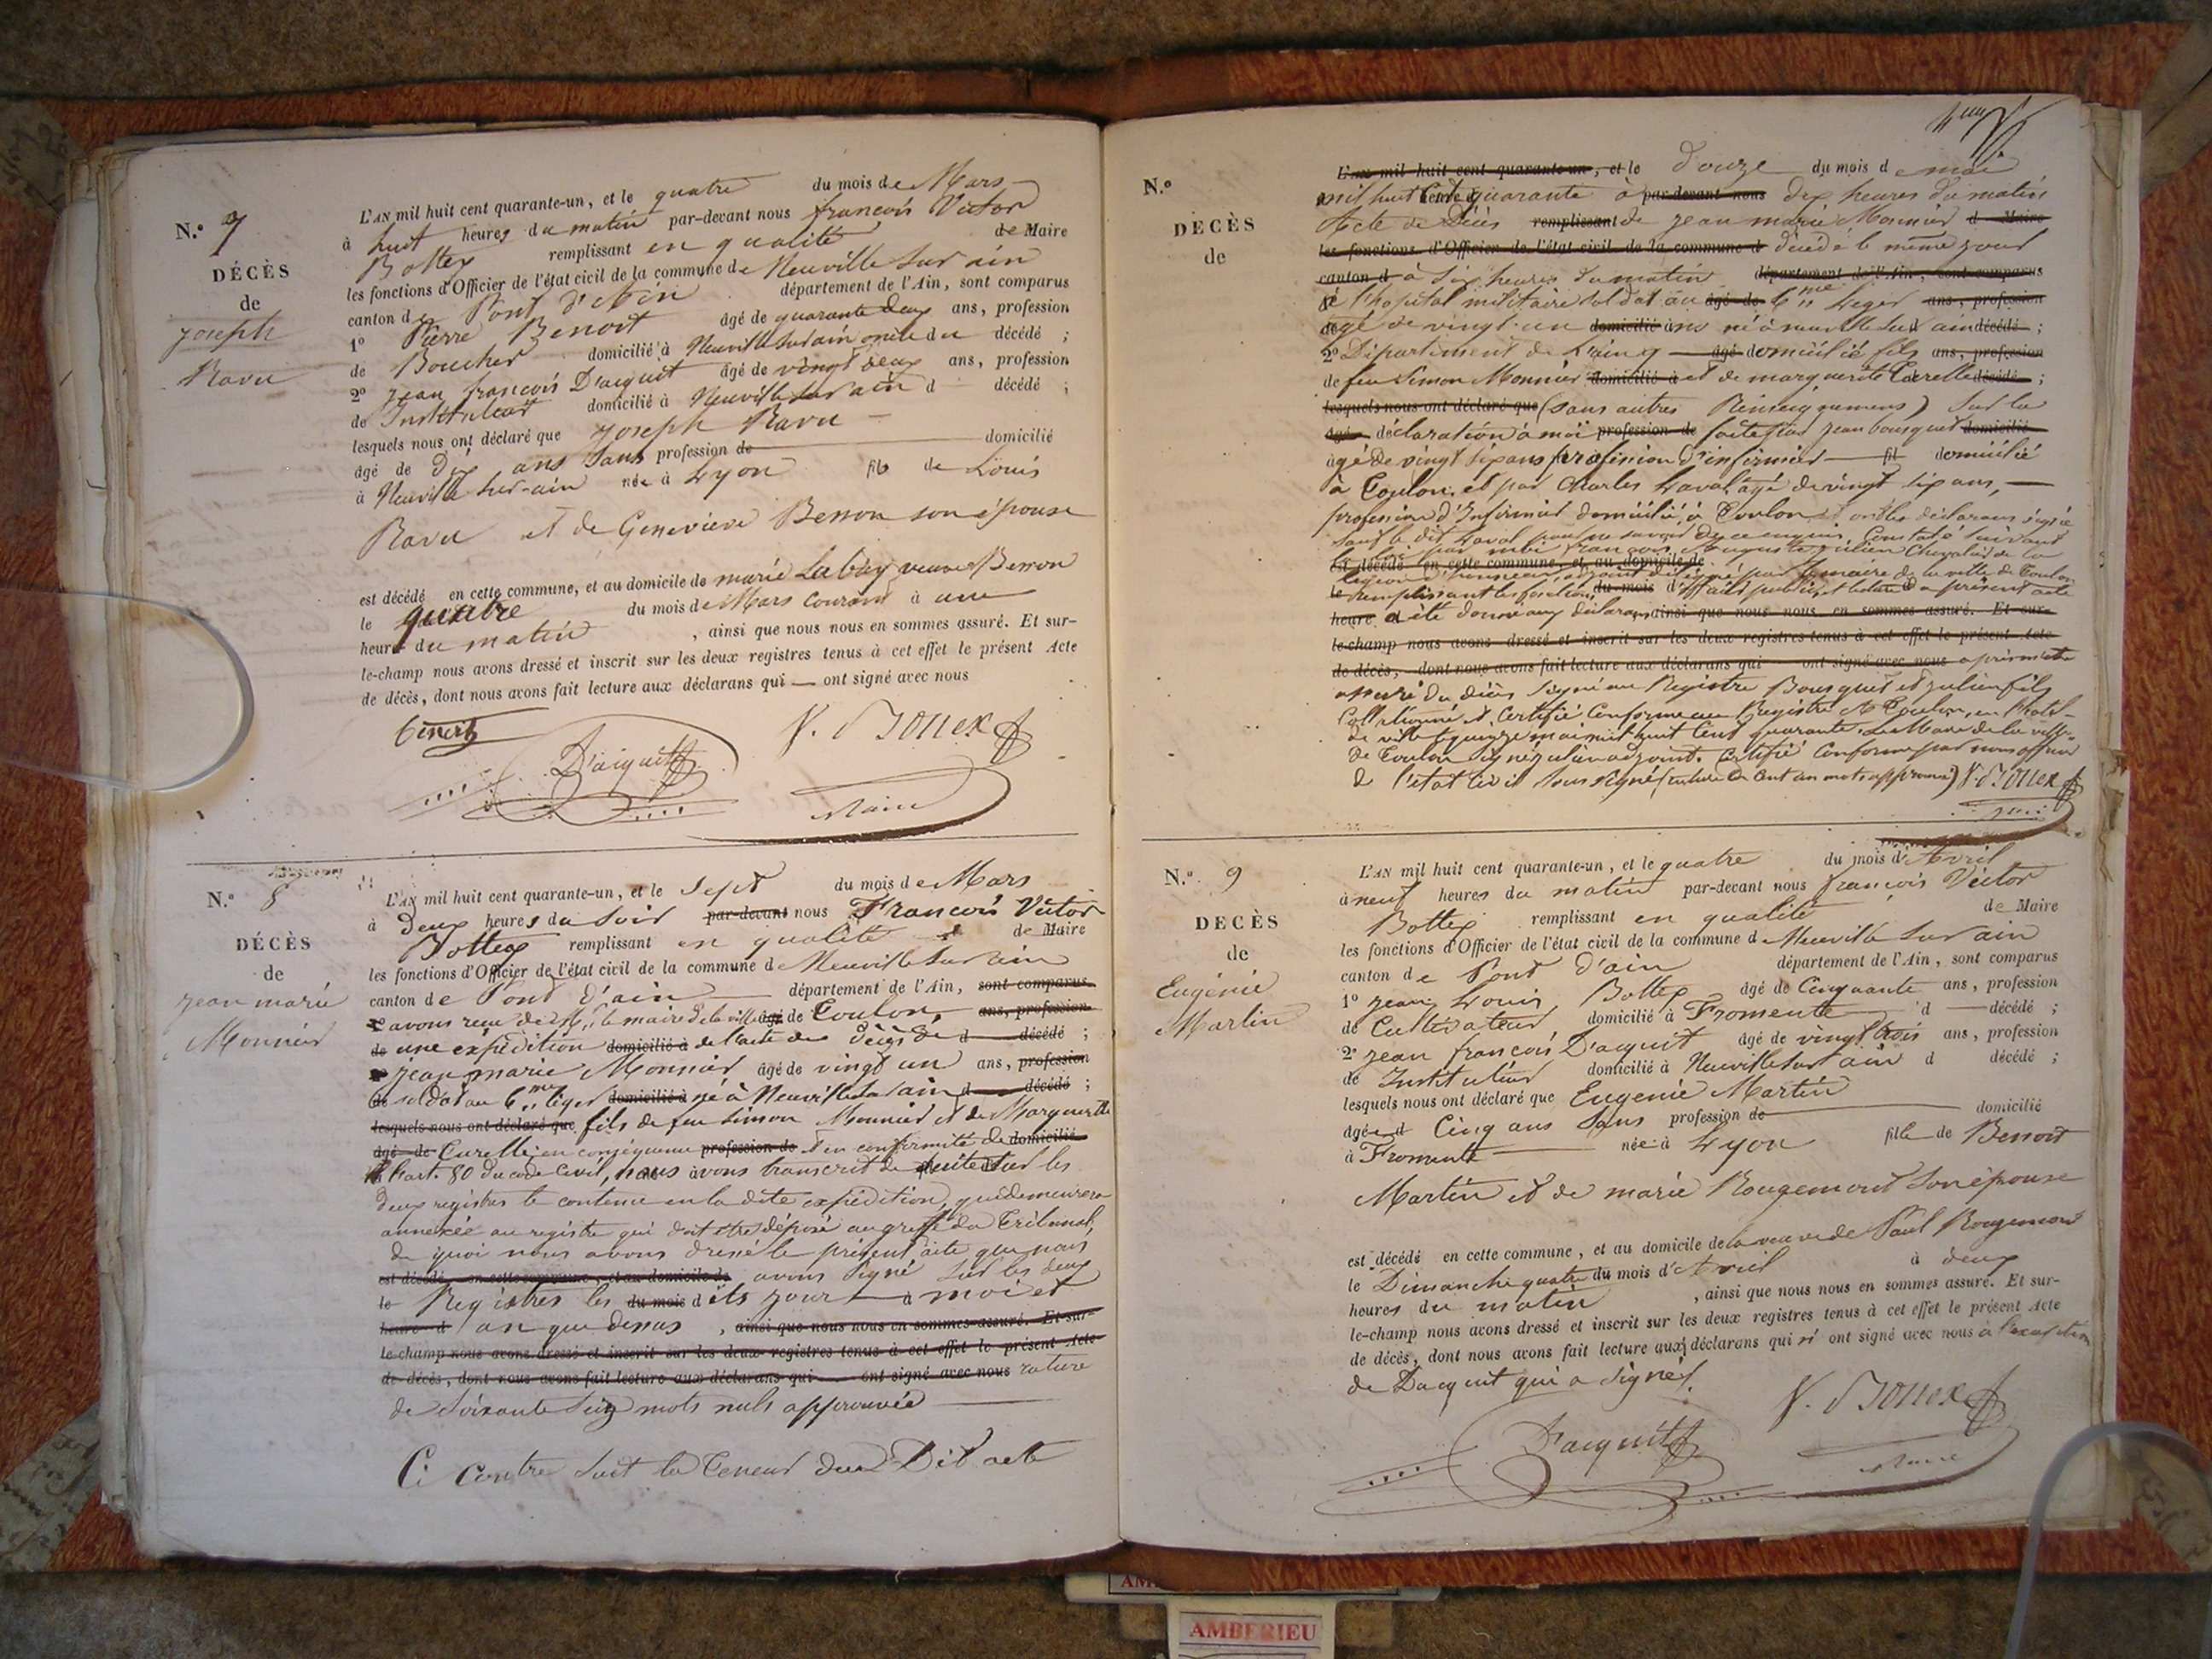 N.° 7
DÉCÈS
de
joseph
Ravu
L'AN mil huit cent quarante-un, et le quatre du mois de Mars
à huit heures du matin par-devant nous francois Victor
Bottex remplissant en qualité de Maire
les fonctions d'Officier de l'état civil de la commune de Neuville sur ain
canton de Pont d'Ain département de l'Ain, sont comparus
1° Pierre Benoit âgé de quarante deux ans, profession
de Boucher domicilié à Neuville sur ain oncle du décédé ;
2° jean francois D'acquit âgé de vingt deux ans, profession
de Instituteur domicilié à Neuville sur ain d décédé ;
lesquels nous ont déclaré que joseph Ravu
âgé de dix ans sans profession de domicilié
à Neuville sur-ain née à Lyon fils de Louis
Ravu et de Genevieve Besson son épouse
est décédé en cette commune, et au domicile de marie veuve Besson
le quatre du mois de Mars courant à une
heure du matin , ainsi que nous nous en sommes assuré. Et sur-
le-champ nous avons dressé et inscrit sur les deux registres tenus à cet effet le présent Acte
de décès, dont nous avons fait lecture aux déclarans qui — ont signé avec nous
D'aiquit V. Bottex
Maire
N.° 8
DÉCÈS
de
jean marie
Monnier
L'AN mil huit cent quarante-un, et le sept du mois de Mars
à Deux heures du soir par-devant nous Francois Victor
Bottex remplissant en qualité de Maire
les fonctions d'Officier de l'état civil de la commune de Neuville sur ain
canton de Pont d'ain département de l'Ain, sont comparus
avons recu de M. le maire de la ville âgé de Toulon, ans, profession
de une expédition domicilié à de l'acte de décès de d décédé ;
jean marie Monnier âgé de vingt un ans, profession
de soldat au 6me léger domicilié à né à Neuville sur ain d décédé ;
lesquels nous ont déclaré que fils de feu simon Monnier et de Marguerite
âgé de Curelle, en conséquence profession de et en conformité de domicilié
l'art. 80 du code Civil, nous avons transcrit de suite sur les
deux registres le contenu en la dite expédition, qui demeurera
annexée au registre qui doit etre déposé au greffe du Tribunal,
de quoi nous avons dressé le présent acte que nous
est décédé en cette commune, et au domicile de avons signé sur les deux
le Registres les du mois dits jour à mois et
heure d an que dessus , ainsi que nous nous en sommes assuré. Et sur-
le-champ nous avons dressé et inscrit sur les deux registres tenus à cet effet le présent Acte
de décès, dont nous avons fait lecture aux déclarans qui — ont signé avec nous rature
de soixante seize mots nuls approuvée
Ci contre suit la Teneur du Dit acte
N.°
DÉCÈS
de
L'AN mil huit cent quarante-un, et le Douze du mois de mai
mil huit Cent quarante à par-devant nous dix heures du matin
Acte de Décès remplissant de jean marie Monnier d Maire
les fonctions d'Officier de l'état civil de la commune d décédé le même jour
canton d à six heures du matin département de l'Ain, sont comparus
à l'hopital militaire soldat au âgé de 6me Leger ans, profession
âgé de vingt-un domicilié ans né à neuville sur ain décédé ;
2° Département de l'ain y âgé domicilié fils ans, profession
de feu Simon Monnier domicilié à et de marguerite Curelle décédé ;
lesquels nous ont déclaré que (sans autres Renseignemens) sur la
âgé déclaration à moi profession de faite par jean bousquet domicilié
âgé de vingt six ans profession d'infirmier fil domicilié
à Toulon et par Charles Laval âgé de vingt six ans,
profession d'Infirmier domicilié à Toulon et ont les déclarans signé
sauf le dit Laval pour ne savoir de ce enquis. Constaté suivant
la loi par moi francois Auguste julien Chevalier de la
est décédé en cette commune, et au domicile de
legion d'honneur, adjoint délégué par le maire de la ville de Toulon
le remplissant les fonctions du mois d'officier public, et lecture du présent acte
heure a été donné aux déclarans ainsi que nous nous en sommes assuré. Et sur-
le-champ nous avons dressé et inscrit sur les deux registres tenus à cet effet le présent Acte
de décès, dont nous avons fait lecture aux déclarans qui ont signé avec nous après m'etre
assuré du décès signé au Registre Bousquet et julien fils
Collationné et Certifié Conforme au Registre à Toulon, en l'hotel-
de ville le quinze mai mil huit Cent quarante. Le Maire de la ville
de Toulon signé julien adjoint. Certifié Conforme par nous officier
de l'état civil sous signé V. Bottex
N.° 9
DECÈS
de
Eugénie
Martin
L'AN mil huit cent quarante-un, et le quatre du mois d'Avril
à neuf heures du matin par-devant nous francois Victor
Bottex remplissant en qualité de Maire
les fonctions d'Officier de l'état civil de la commune de Neuville sur ain
canton de Pont d'ain département de l'Ain, sont comparus
1° jean Louis Bottex âgé de Cinquante ans, profession
de Cultivateur domicilié à Fromente d décédé ;
2° jean francois D'acquit âgé de vingt trois ans, profession
de Instituteur domicilié à Neuville sur ain d décédé ;
lesquels nous ont déclaré que Eugénie Martin
agée d Cinq ans sans profession de domicilié
à Fromente née à Lyon fille de Benoit
Martin et de marie Rougemont son épouse
est décédé en cette commune, et au domicile de la veuve de Paul Rougemont
le Dimanche quatre du mois d'Avril à deux
heures du matin , ainsi que nous nous en sommes assuré. Et sur-
le-champ nous avons dressé et inscrit sur les deux registres tenus à cet effet le présent Acte
de décès, dont nous avons fait lecture aux déclarans qui n' ont signé avec nous à l'exception
de Dacquit qui a signé.
Dacquit V. Bottex
Maire
AMBERIEU